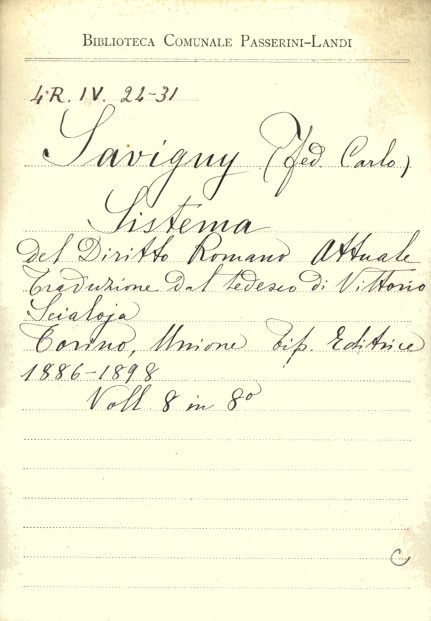 BIBLIOTECA COMUNALE PASSERINI-LANDI
4·R. IV. 24-31
Savigny (Fed Carlo)
Sistema
del Diritto Romano Attuale
Traduzione dal tedesco di Vittorio
Scialoja
Torino, Unione tip. Editrice
1886-1898
Voll. 8 in 8º
C